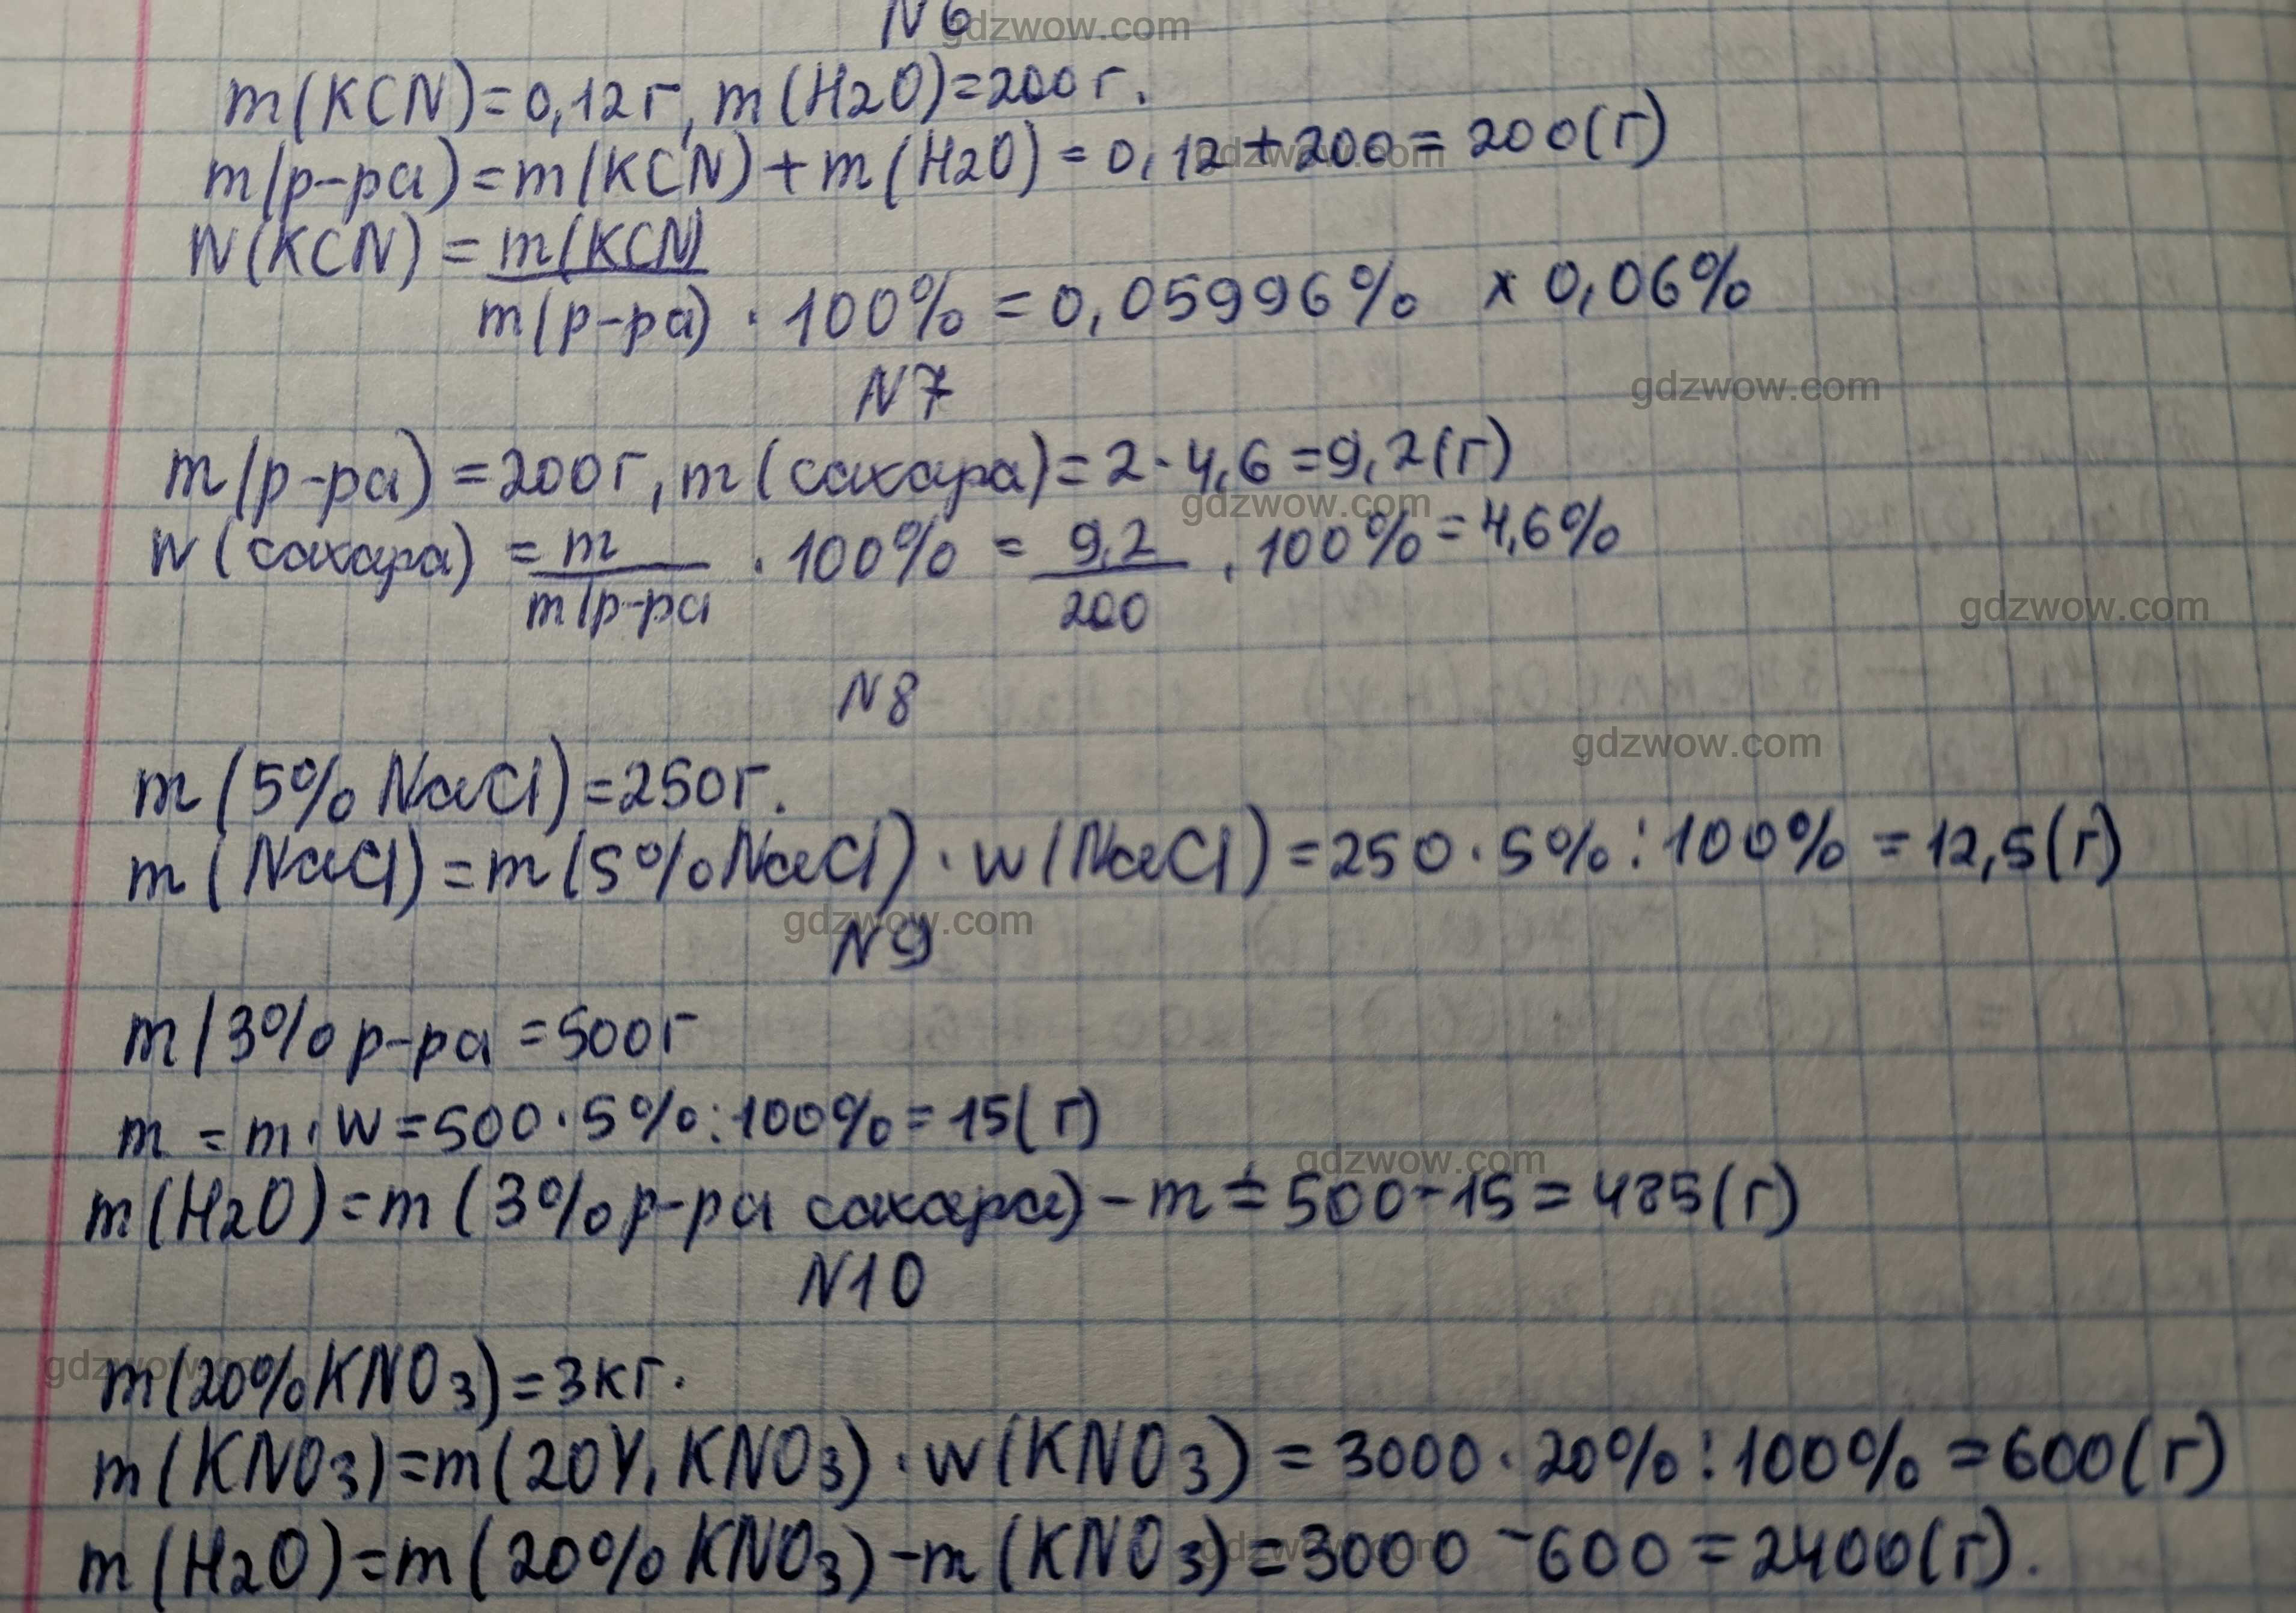 N6
gdzwow.com
m(KCN)=0,12г, m(H2O)=200г.
m(р-ра)=m(KCN)+m(H2O)=0,12+200=200(г)
gdzwow.com
W(KCN) = m(KCN)
m(р-ра) · 100% = 0,05996% x 0,06%
N7
gdzwow.com
m(р-ра)=200г, m(сахара)=2·4,6=9,2(г)
gdzwow.com
W(сахара) = m · 100% = 9,2 · 100% = 4,6%
m(р-ра 200
gdzwow.com
N8
gdzwow.com
m(5% NaCl)=250г.
m(NaCl)=m(5%NaCl)·w(NaCl)=250·5%:100%=12,5(г)
gdzwow.com
N9
m(3% р-ра =500г
m = m·W=500·5%:100%=15(г)
gdzwow.com
m(H2O)=m(3%р-ра сахара)-m=500-15=485(г)
N10
gdzwow.com
m(20%KNO3)=3кг.
m(KNO3)=m(20%KNO3)·w(KNO3)=3000·20%:100%=600(г)
gdzwow.com
m(H2O)=m(20%KNO3)-m(KNO3)=3000-600=2400(г).